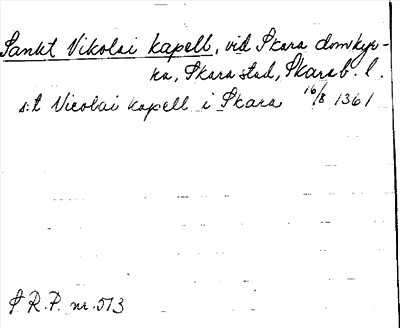 Sankt Nikolai kapell, vid Skara domkyr-
ka, Skara stad, Skarab. l.
s:t Nicolai kapell i Skara 16/8 1361
S R.P. nr. 513